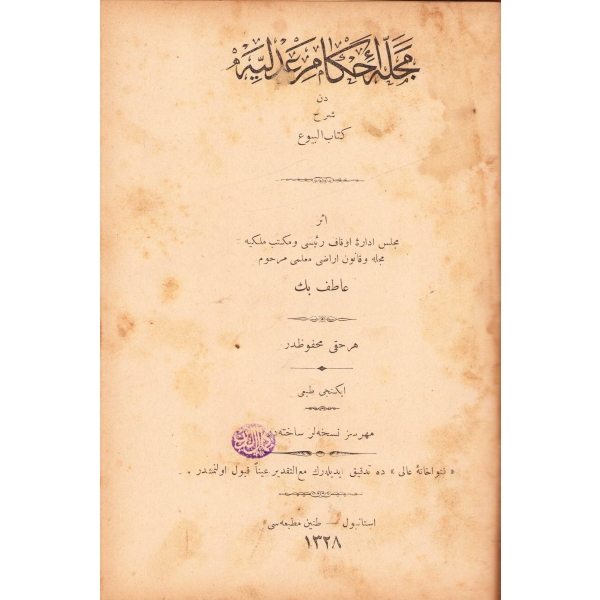 مجلۀ احكام عدليه
دن
شرح
كتاب البيوع
اثر
مجلس ادارۀ اوقاف رئيسى ومكتب ملكيه
مجله وقانون اراضى معلمى مرحوم
عاطف بك
هر حقى محفوظدر
ايكنجى طبعى
مهرسز نسخه‌لر ساخته‌در
« فتواخانۀ عالى » ده تدقيق ايديله‌رك مع التقدير عيناً قبول اولنمشدر .
استانبول — طنين مطبعه‌سى
١٣٢٨